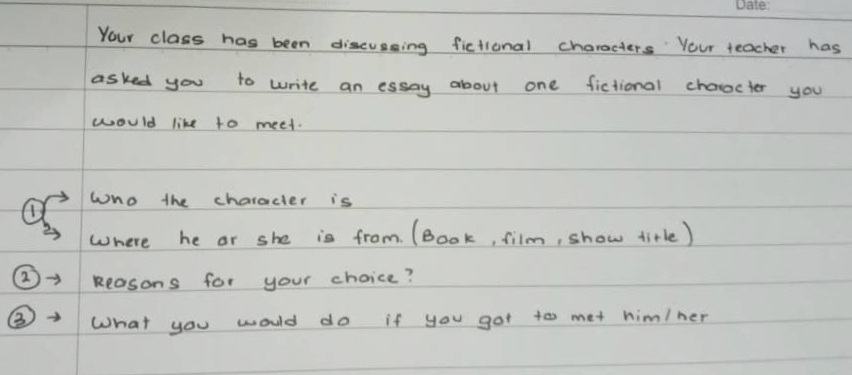 Date:
Your class has been discussing fictional characters. Your teacher has
asked you to write an essay about one fictional character you
would like to meet.
① → Who the character is
2→ Where he or she is from. (Book, film, show title)
② → Reasons for your choice?
③ → What you would do if you got to met him/her